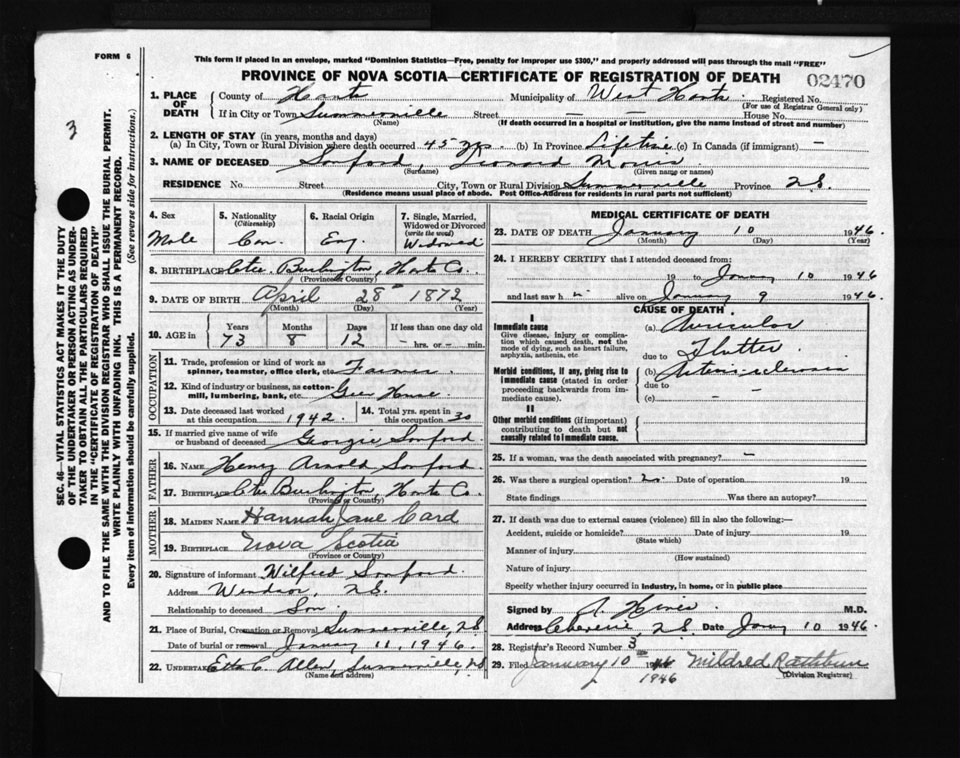 FORM 6
This form if placed in an envelope, marked "Dominion Statistics—Free, penalty for improper use $300," and properly addressed will pass through the mail "FREE"
PROVINCE OF NOVA SCOTIA—CERTIFICATE OF REGISTRATION OF DEATH
02470
3
SEC. 46—VITAL STATISTICS ACT MAKES IT THE DUTY
OF THE UNDERTAKER OR PERSON ACTING AS UNDER-
TAKER TO OBTAIN ALL THE PARTICULARS REQUIRED
IN THE "CERTIFICATE OF REGISTRATION OF DEATH"
AND TO FILE THE SAME WITH THE DIVISION REGISTRAR WHO SHALL ISSUE THE BURIAL PERMIT.
WRITE PLAINLY WITH UNFADING INK. THIS IS A PERMANENT RECORD.
Every item of information should be carefully supplied. (See reverse side for instructions.)
1. PLACE OF DEATH County of Hants Municipality of West Hants Registered No.
(For use of Registrar General only)
If in City or Town Summerville Street — House No. —
(Name) (If death occurred in a hospital or institution, give the name instead of street and number)
2. LENGTH OF STAY (in years, months and days)
(a) In City, Town or Rural Division where death occurred 45 yrs. (b) In Province Lifetime (c) In Canada (if immigrant) —
3. NAME OF DECEASED Sanford, Leonard Morris
(Surname) (Given name or names)
RESIDENCE No. Street City, Town or Rural Division Summerville Province N.S.
(Residence means usual place of abode. Post Office Address for residents in rural parts not sufficient)
4. Sex Male
5. Nationality (Citizenship) Can.
6. Racial Origin Eng.
7. Single, Married, Widowed or Divorced (write the word) Widowed
8. BIRTHPLACE Ctre. Burlington, Hants Co.
(Province or Country)
9. DATE OF BIRTH April 28th 1872
(Month) (Day) (Year)
10. AGE in Years 73 Months 8 Days 12 If less than one day old — hrs. or — min.
OCCUPATION
11. Trade, profession or kind of work as spinner, teamster, office clerk, etc. Farmer
12. Kind of industry or business, as cotton-mill, lumbering, bank, etc.
13. Date deceased last worked at this occupation 1942
14. Total yrs. spent in this occupation 30
15. If married give name of wife or husband of deceased Georgie Sanford
FATHER
16. NAME Henry Arnold Sanford.
17. BIRTHPLACE Ctre Burlington, Hants Co.
(Province or Country)
MOTHER
18. MAIDEN NAME Hannah Jane Card
19. BIRTHPLACE Nova Scotia
(Province or Country)
20. Signature of informant Wilfred Sanford.
Address Windsor, N.S.
Relationship to deceased Son.
21. Place of Burial, Cremation or Removal Summerville, N.S
Date of burial or removal January 11, 1946.
22. UNDERTAKER Etta C. Allen, Summerville, N.S
(Name and address)
MEDICAL CERTIFICATE OF DEATH
23. DATE OF DEATH January 10 1946.
(Month) (Day) (Year)
24. I HEREBY CERTIFY that I attended deceased from:
19 to January 10 1946
and last saw h im alive on January 9 1946.
CAUSE OF DEATH
I
Immediate cause
Give disease, injury or complication which caused death, not the mode of dying, such as heart failure, asphyxia, asthenia, etc.
(a) Auricular
due to Flutter
Morbid conditions, if any, giving rise to immediate cause (stated in order proceeding backwards from immediate cause).
(b) Arterio-sclerosis
due to
(c) —
II
Other morbid conditions (if important) contributing to death but not causally related to immediate cause.
25. If a woman, was the death associated with pregnancy? —
26. Was there a surgical operation? no. Date of operation 19
State findings Was there an autopsy?
27. If death was due to external causes (violence) fill in also the following:—
Accident, suicide or homicide? Date of injury 19
(State which)
Manner of injury
(How sustained)
Nature of injury
Specify whether injury occurred in industry, in home, or in public place
Signed by M.D.
Address Cheverie, N.S. Date Jany 10 1946.
28. Registrar's Record Number 3
29. Filed January 10th 1946 Mildred Rathbun
1946
(Division Registrar)